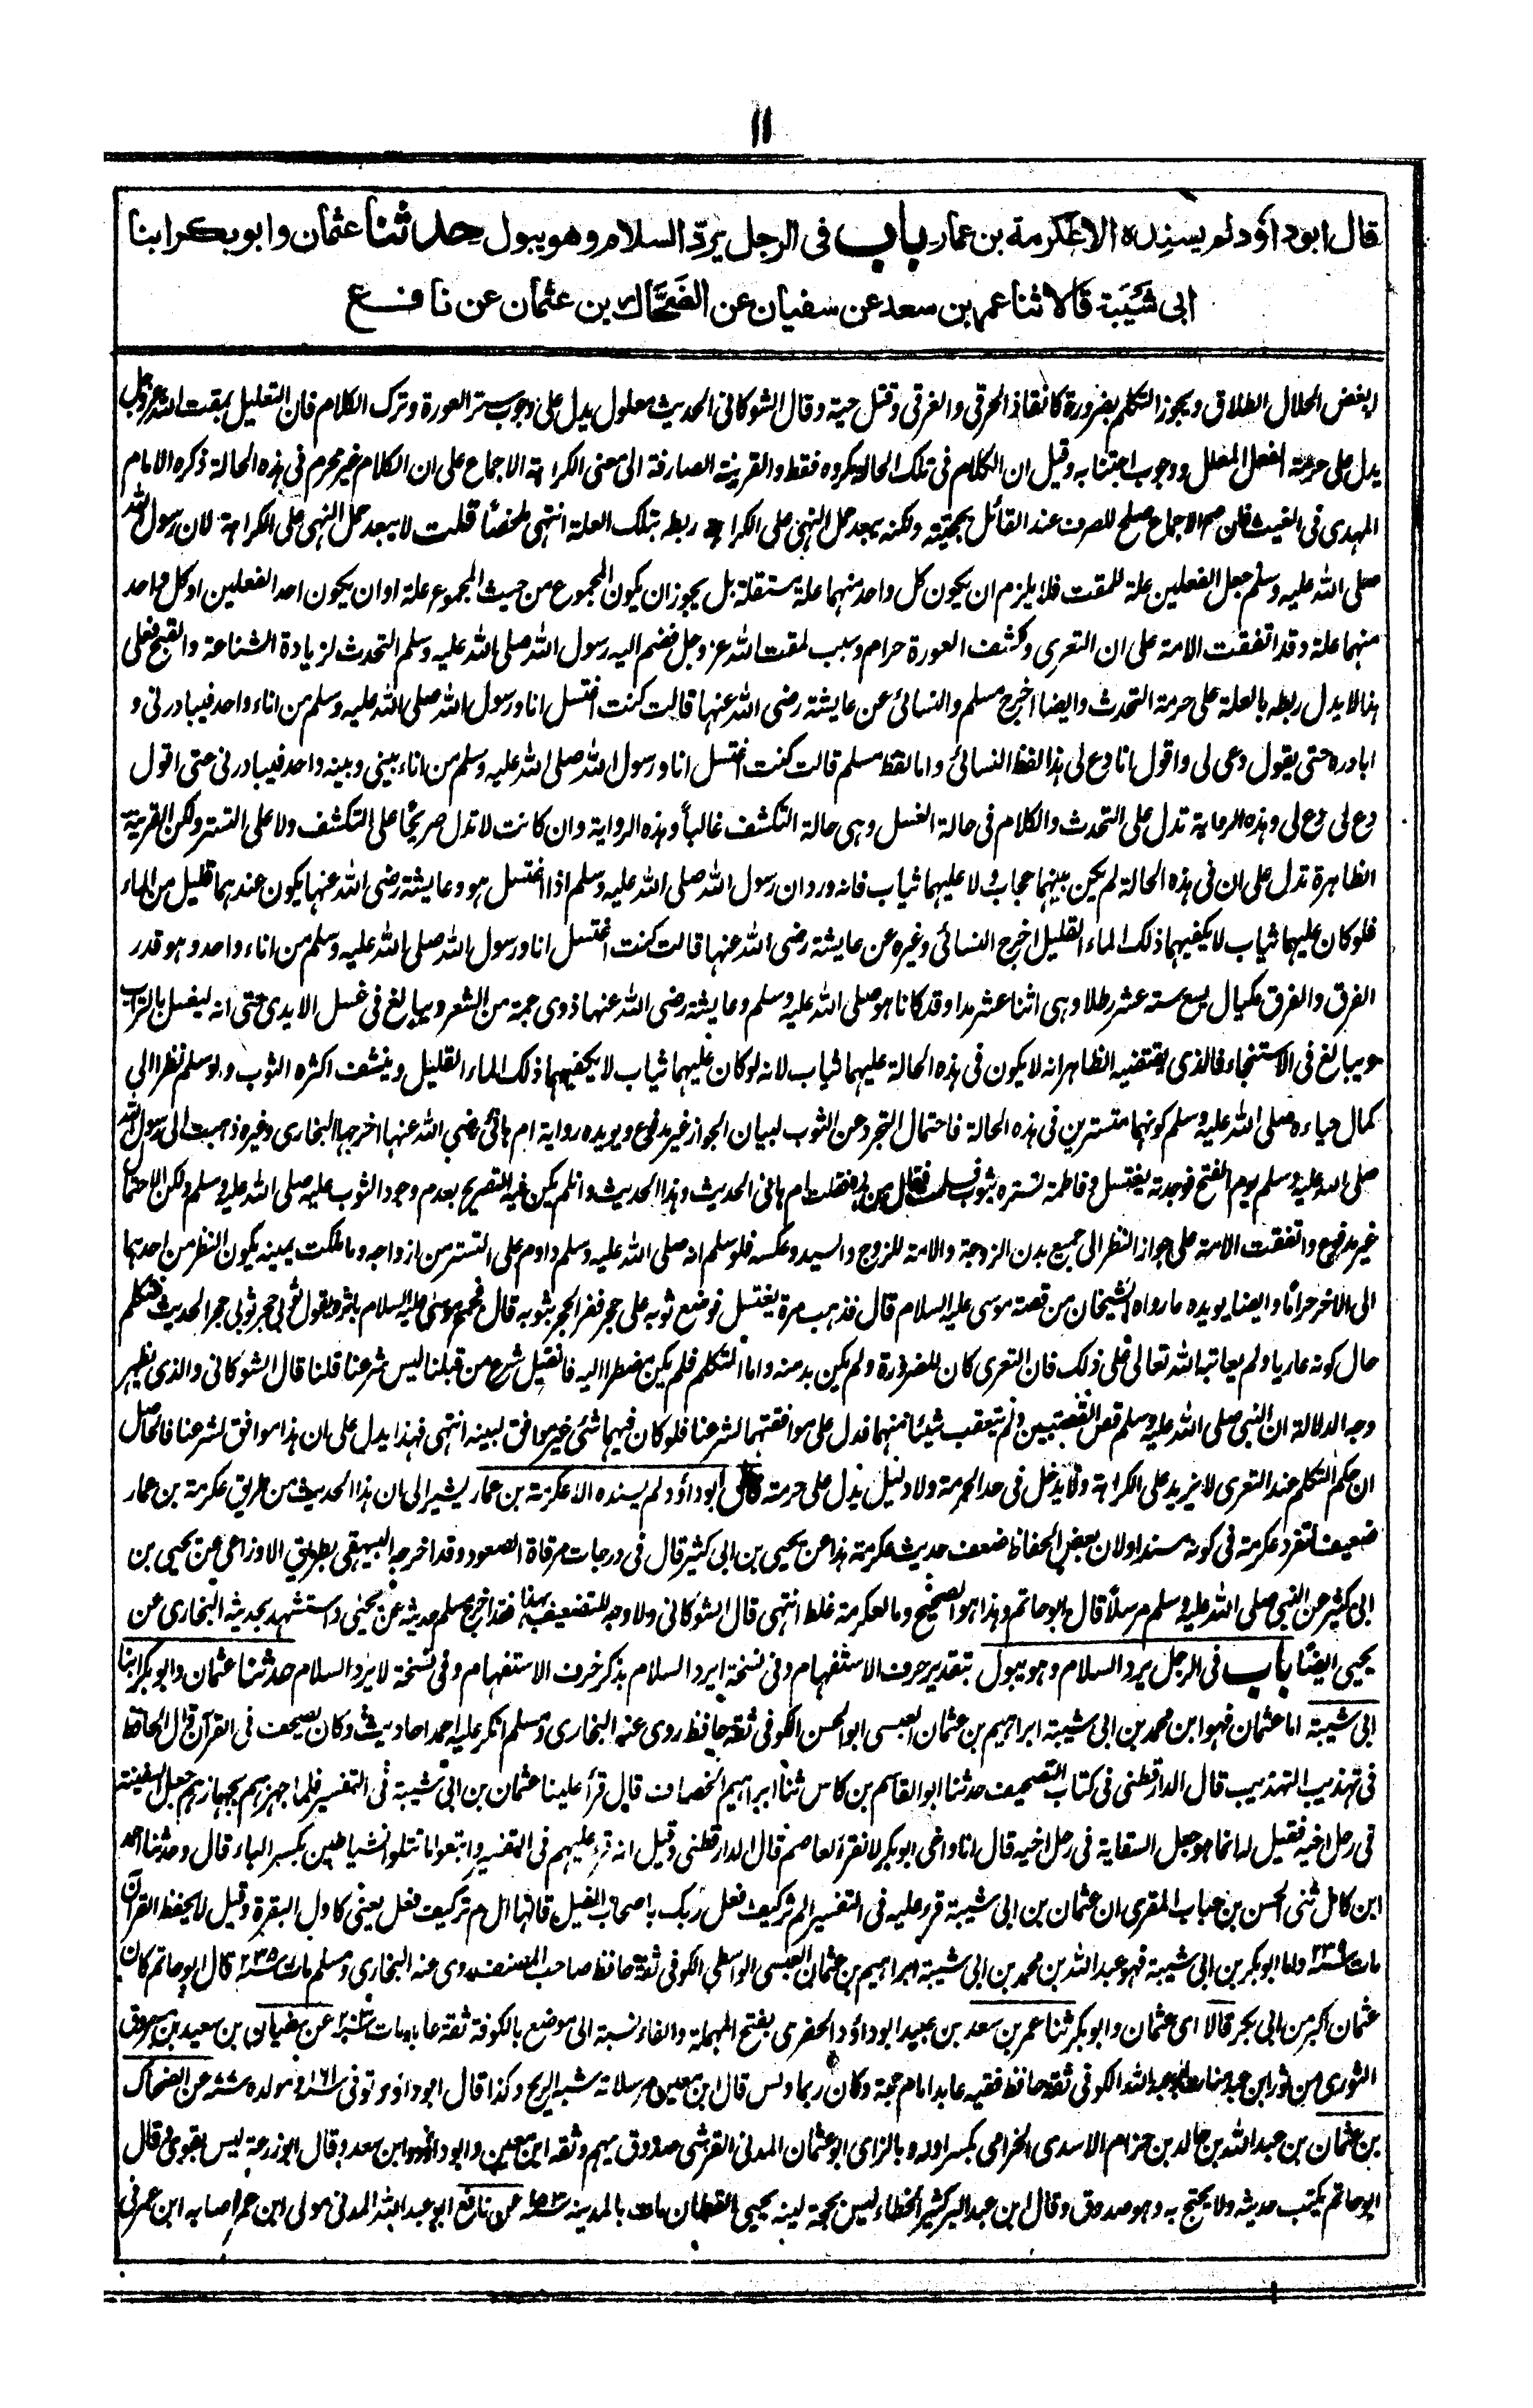 ١١
قال ابوداؤد لم يسنده الا عكرمة بن عمار باب فى الرجل يردّ السلام وهو يبول حدثنا عثمان وابوبكر ابنا
ابى شَيْبَة قالا ثنا عمر بن سعد عن سفيان عن الضَّحَّاك بن عثمان عن نافع
ابغض الحلال الطلاق ويجوز التكلم بضرورة كانقاذ الحرقى والغرقى وقتل حية وقال الشوكانى الحديث معلول يدل على وجوب ستر العورة وترك الكلام فان التعليل بمقت الله عزوجل
يدل على حرمة الفعل المعلل ووجوب اجتنابه وقيل ان الكلام فى تلك الحالة مكروه فقط والقرينة الصارفة الى معنى الكراهة الاجماع على ان الكلام غير محرم فى هذه الحالة ذكره الامام
المهدى فى الغيث فان صح الاجماع صلح للصرف عند القائل بحجيته ولكنه يبعد حمل النهى على الكراهة ربطه بتلك العلة انتهى ملخصاً قلت لا يبعد حمل النهى على الكراهة لان رسول الله
صلى الله عليه وسلم جعل الفعلين علة للمقت فلا يلزم ان يكون كل واحد منهما علة مستقلة بل يجوز ان يكون المجموع من حيث المجموع علة او ان يكون احد الفعلين او كل واحد
منهما علة وقد اتفقت الامة على ان التعرى وكشف العورة حرام وسبب لمقت الله عزوجل فضم اليه رسول الله صلى الله عليه وسلم التحدث لزيادة الشناعة والقبح فعلى
هذا لا يدل ربطه بالعلة على حرمة التحدث وايضا اخرج مسلم والنسائى عن عايشة رضى الله عنها قالت كنت اغتسل انا ورسول الله صلى الله عليه وسلم من اناء واحد فيبادرنى و
ابادره حتى يقول دعى لى واقول انا دع لى هذا لفظ النسائى واما لفظ مسلم قالت كنت اغتسل انا ورسول الله صلى الله عليه وسلم من اناء بينى وبينه واحد فيبادرنى حتى اقول
دع لى دع لى وهذه الرواية تدل على التحدث والكلام فى حالة الغسل وهى حالة التكشف غالباً وهذه الرواية وان كانت لا تدل صريحًا على التكشف ولا على التستر ولكن القرينة
الظاهرة تدل على ان فى هذه الحالة لم يكن بينهما حجاب ولا عليهما ثياب فانه ورد ان رسول الله صلى الله عليه وسلم اذا اغتسل هو وعايشة رضى الله عنها يكون عندهما قليل من الماء
فلو كان عليهما ثياب لا يكفيهما ذلك الماء القليل اخرج النسائى وغيره عن عايشة رضى الله عنها قالت كنت اغتسل انا ورسول الله صلى الله عليه وسلم من اناء واحد وهو قدر
الفرق والفرق مكيال يسع ستة عشر رطلا وهى اثنا عشر مدا وقد كانا هو صلى الله عليه وسلم وعايشة رضى الله عنها ذوى جمة من الشعر ويبالغ فى غسل الايدى حتى انه ليغسل بالتراب
ويبالغ فى الاستنجاء فالذى يقتضيه الظاهر انه لا يكون فى هذه الحالة عليهما ثياب لانه لو كان عليهما ثياب لا يكفيهما ذلك الماء القليل وينشف اكثره الثوب ولو سلم نظرا الى
كمال حياءه صلى الله عليه وسلم كونهما متسترين فى هذه الحالة فاحتمال التجرد عن الثوب لبيان الجواز غير مدفوع ويويده رواية ام هانئ رضى الله عنها اخرجها البخارى وغيره ذهبت الى رسول الله
صلى الله عليه وسلم يوم الفتح فوجدته يغتسل وفاطمة تستره بثوب فسلمت فقال من هذه فقلت ام هانئ الحديث وهذا الحديث وان لم يكن فيه التصريح بعدم وجود الثوب عليه صلى الله عليه وسلم ولكن الاحتمال
غير مدفوع واتفقت الامة على جواز النظر الى جميع بدن الزوجة والامة للزوج والسيد وعكسه فلو سلم انه صلى الله عليه وسلم داوم على التستر من ازواجه وما ملكت يمينه يكون النظر من احدهما
الى الاخر حراما وايضا يويده ما رواه الشيخان من قصة موسى عليه السلام قال فذهب مرة يغتسل فوضع ثوبه على حجر ففر الحجر بثوبه قال فجمح موسى عليه السلام باثره يقول ثوبى حجر ثوبى حجر الحديث فتكلم
حال كونه عاريا ولم يعاتبه الله تعالى على ذلك فان التعرى كان للضرورة ولم يكن بد منه واما التكلم فلم يكن مضطرا اليه فان قيل شرع من قبلنا ليس شرعنا قلنا قال الشوكانى والذى يظهر
وجه الدلالة ان النبى صلى الله عليه وسلم قص القصتين ولم يتعقب شيئا منهما فدل على موافقتهما لشرعنا فلو كان فيهما شئ غير موافق لبينه انتهى فهذا يدل على ان هذا موافق لشرعنا فالحاصل
ان حكم التكلم عند التعرى لا يزيد على الكراهة ولا يدخل فى حد الحرمة ولا دليل يدل على حرمته قال ابوداؤد لم يسنده الا عكرمة بن عمار يشير الى ان هذا الحديث من طريق عكرمة بن عمار
ضعيف لتفرد عكرمة فى كونه مسندا ولان بعض الحفاظ ضعف حديث عكرمة هذا عن يحيى بن ابى كثير قال فى درجات مرقاة الصعود وقد اخرجه البيهقى بطريق الاوزاعى عن يحيى بن
ابى كثير عن النبى صلى الله عليه وسلم مرسلاً قال ابوحاتم وهذا هو الصحيح وما لعكرمة غلط انتهى قال الشوكانى ولا وجه للتضعيف بهذا فقد اخرج مسلم حديثه عن يحيى واستشهد بحديثه البخارى عن
يحيى ايضًا باب فى الرجل يرد السلام وهو يبول بتقدير حرف الاستفهام وفى نسخة ايرد السلام بذكر حرف الاستفهام وفى نسخة لا يرد السلام حدثنا عثمان وابوبكر ابنا
ابى شيبة اما عثمان فهو ابن محمد بن ابى شيبة ابراهيم بن عثمان العبسى ابو الحسن الكوفى ثقة حافظ روى عنه البخارى ومسلم انكر عليه احمد احاديث وكان يصحف فى القرآن قال الحافظ
فى تهذيب التهذيب قال الدارقطنى فى كتاب التصحيف حدثنا ابو القاسم بن كاس ثنا ابراهيم الخصاف قال قرأ علينا عثمان بن ابى شيبة فى التفسير فلما جهزهم بجهازهم جعل السفينة
فى رحل اخيه فقيل له انما هو جعل السقاية فى رحل اخيه قال انا واخى ابوبكر لا نقرء لعاصم قال الدارقطنى وقيل انه قرء عليهم فى التفسير واتبعوا ما تتلوا الشياطين بكسر الباء قال وحدثنا احمد
ابن كامل ثنى الحسن بن حباب المقرى ان عثمان بن ابى شيبة قرء عليه فى التفسير الم تر كيف فعل ربك باصحاب الفيل قالها ال م تر كيف فعل يعنى كاول البقرة وقيل لا يحفظ القرآن
مات ٢٣٩ واما ابوبكر بن ابى شيبة فهو عبدالله بن محمد بن ابى شيبة ابراهيم بن عثمان العبسى الواسطى الكوفى ثقة حافظ صاحب المصنف روى عنه البخارى ومسلم مات ٢٣٥ قال ابوحاتم كان
عثمان اكبر من ابى بكر قالا اى عثمان وابوبكر ثنا عمر بن سعد بن عبيد ابوداؤد الحفرى بفتح المهملة والفاء نسبة الى موضع بالكوفة ثقة عابد مات ٢٠٣ عن سفيان بن سعيد بن مسروق
الثورى من ثور ابن عبد مناة ابو عبدالله الكوفى ثقة حافظ فقيه عابد امام حجة وكان ربما دلس قال ابن معين مرسلاته شبه الريح وكذا قال ابوداؤد وتوفى ١٦١ ومولده عن الضحاك
بن عثمان بن عبدالله بن خالد بن حزام الاسدى الحزامى بكسر اوله وبالزاى ابو عثمان المدنى القرشى صدوق يهم وثقه ابن معين وابوداؤد وابن سعد وقال ابوزرعة ليس بقوى قال
ابوحاتم يكتب حديثه ولا يحتج به وهو صدوق وقال ابن عبد البر كثير الخطاء ليس بحجة لينه يحيى القطان مات بالمدينة ١٥٣ عن نافع ابو عبدالله المدنى مولى ابن عمر اصابه ابن عمر فى